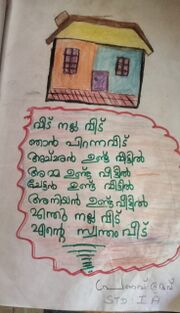 വീട് നല്ല വീട്
ഞാൻ പിറന്നവീട്
അച്ഛൻ ഉണ്ട് വീട്ടിൽ
അമ്മ ഉണ്ടു വീട്ടിൽ
ചേട്ടൻ ഉണ്ടു വീട്ടിൽ
അനിയൻ ഉണ്ടു വീട്ടിൽ
എന്തു നല്ല വീട്
എന്റെ സ്വന്തം വീട്
STD: I A